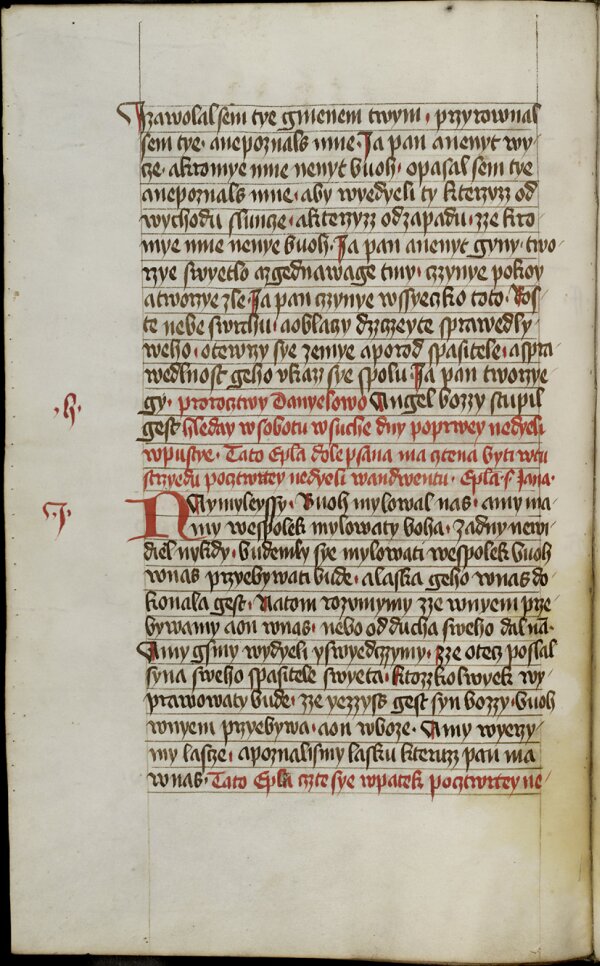 Izawolal sem tye gmenem twym · przyrownal
sem tye · anepoznals mne · Ja pan a nenyt wy-
cze · akromye mne nenyt buoh · opasal sem tye
anepoznals mne · aby wyedyeli ty kterzyz od
wychodu sluncze · akterzyz odzapadu · zze kro-
mye mne nenye buoh · Ja pan anenyt gyny · two-
rzye swyetlo azgednawage tmy · czynye pokoy
atworzye zle · Ja pan czynye wssyeczko toto · Ros-
te nebe swrchu · aoblaczy dzczeyte sprawedly-
weho · otewrzy sye zemye aporod spasitele · aspra-
wedlnost geho vkaz sye spolu · Ja pan tworzye
gy · proroczstwy Danyelowo Angel bozzy stupil
·h·
gest hleday wsobotu wsuche dny poprwey nedyeli
wpustye · Tato Epla dolepsana ma cztena byti wtu
strzyedu pocztwrtey nedyeli wandwentu · Epla s Jana ·
·J·
Naymyleyssy · Buoh mylowal nas · amy ma-
my wespolek mylowaty boha · zadny newi-
diel nykdy · budemly sye mylowati wespolek buoh
wnas przyebywati bude · alaska geho wnas do-
konala gest · Natom rozumymy zze wnyem prze-
bywamy aon wnas · nebo od ducha sweho dal nā ·
Amy gsmy wydyeli yswyedczymy · zze otecz poslal
syna sweho spasitele swyeta · ktozzkolwyek wy-
prawowaty bude · zze yezzyss gest syn bozzy · buoh
wnyem przyebywa · aon wboze · Amy wyerzy-
my lasce · apoznalismy lasku kteruzz pan ma
wnas · Tato Epla czte sye wpatek pocztwrtey ne-